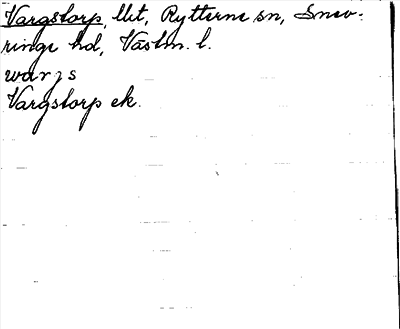 Vargstorp, llt, Rytterne sn, Snev-
ringe hd, Västm. l.
warjs
Vargstorp ek.